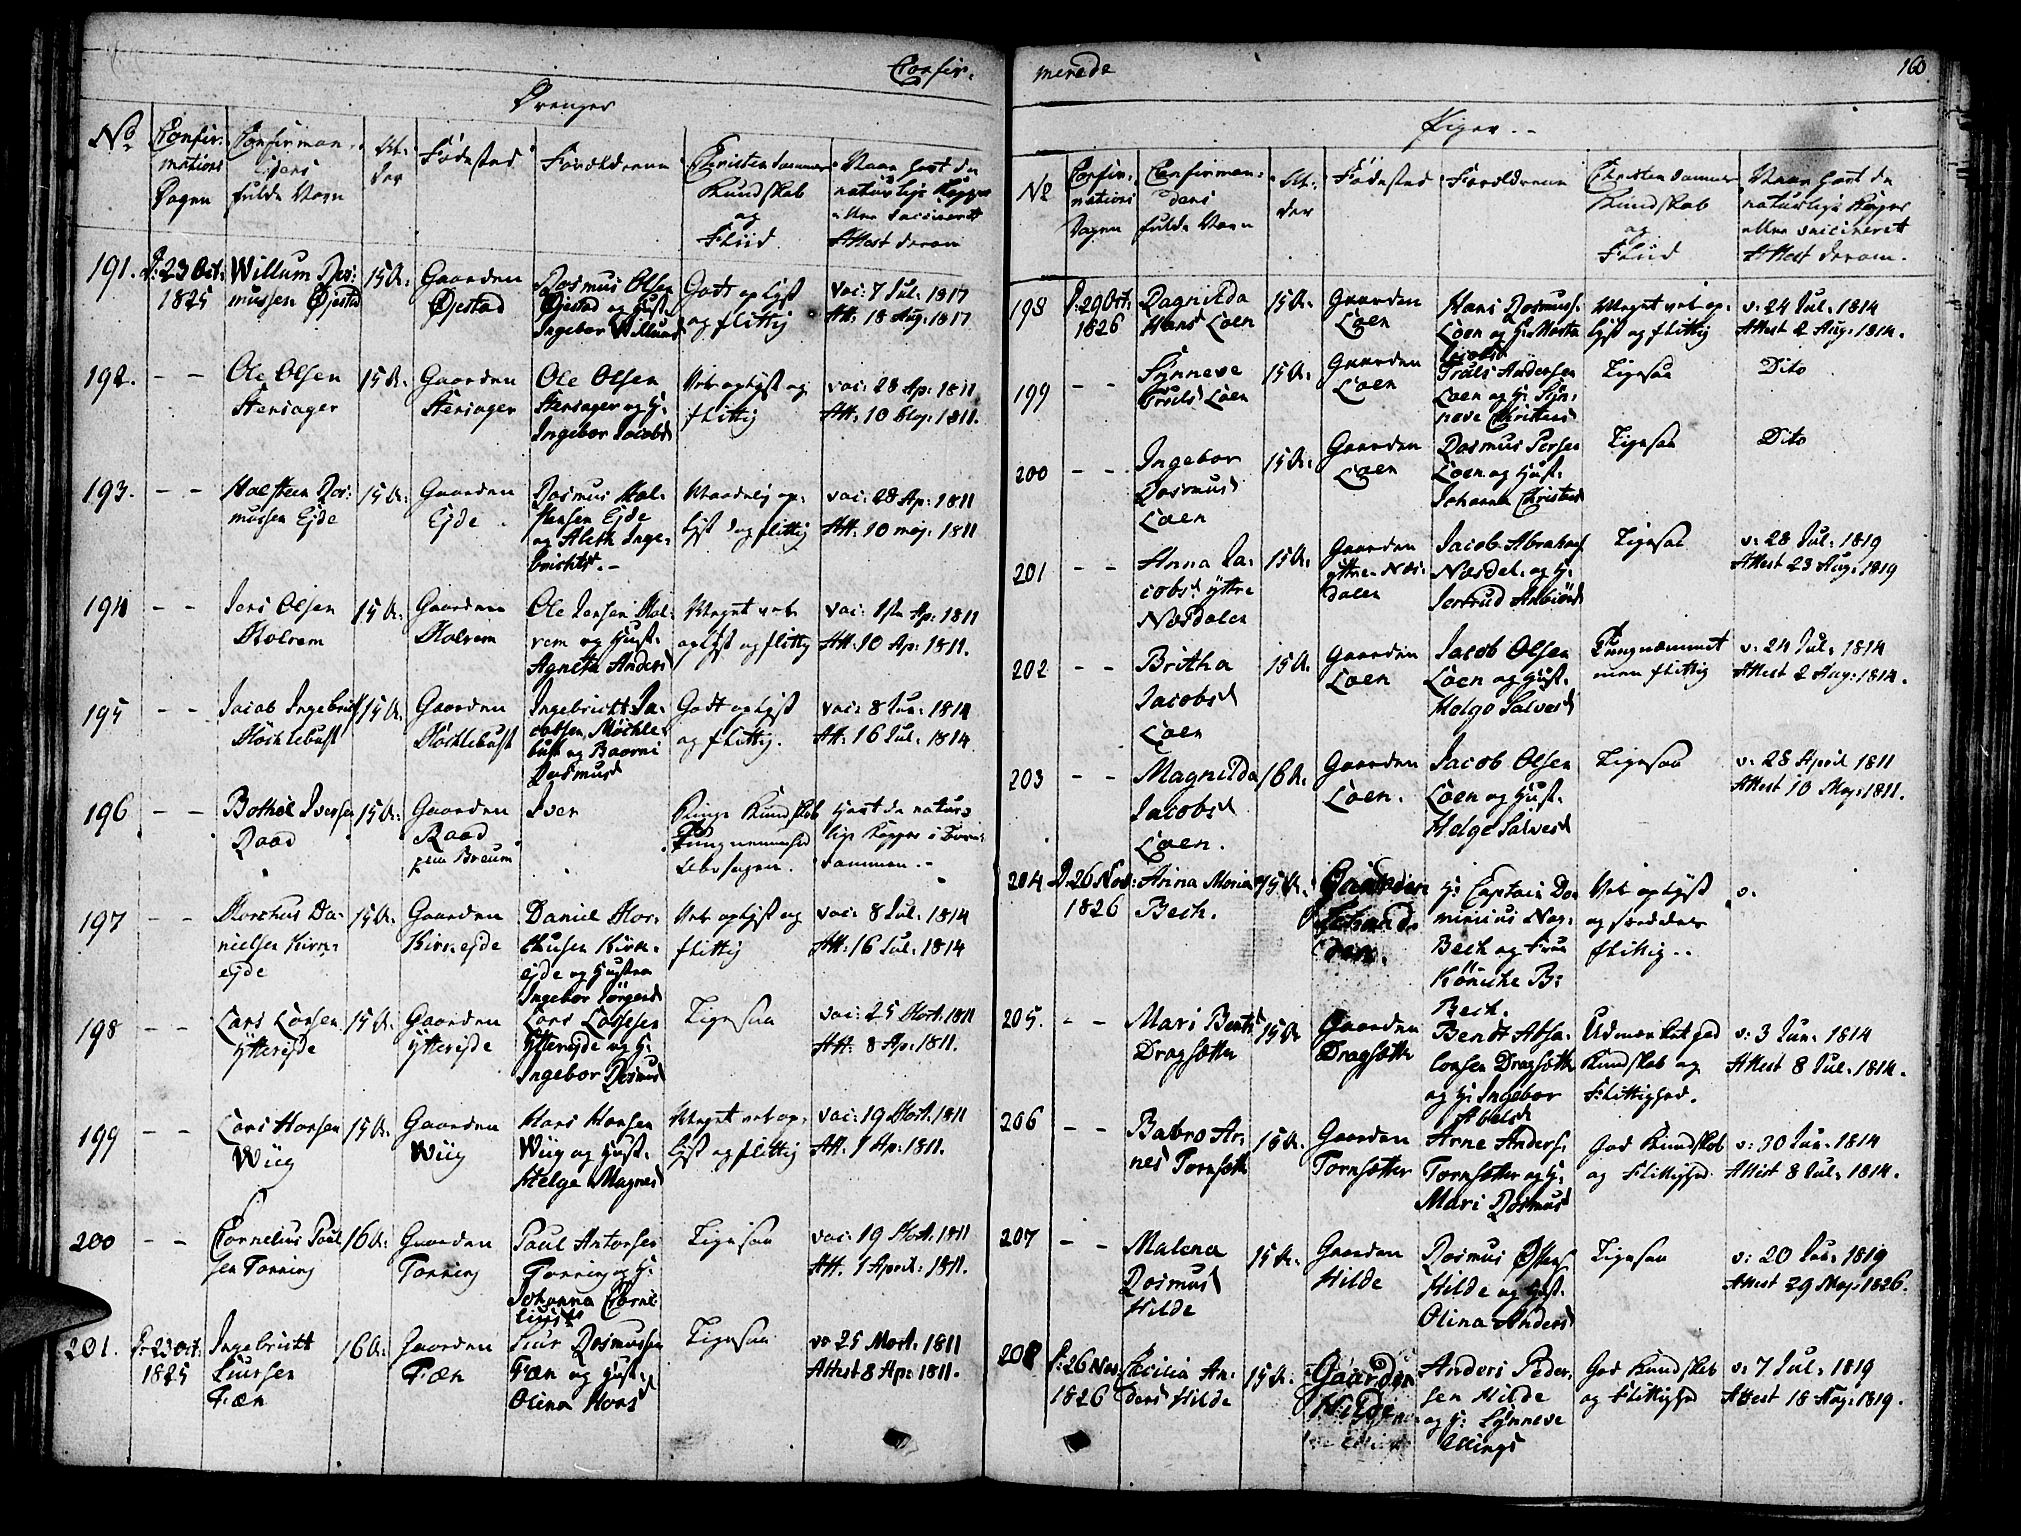 Confir-
Drenger
No
Confir-
mations
Dagen
Confirman-
dens
fulde Navn
Al-
der
Fødested
Forældrene
Christendommens
Kundskab
og
Fliid
Naar havt de
naturlige Kopper
eller vaccineret
Attest derom
191. D: 23 Oct: 1825
Willum Ras-
mussen Øjestad
15 A:
Gaarden
Øjestad
Rasmus Olsen
Øjestad og Hust:
Ingebor Willums
Godt oplyst
og flittig
vac: 7 Jul: 1817
Att: 18 Aug: 1817
192. - -
Ole Olsen
Stensager
15 A:
Gaarden
Stensager
Ole Olsen
Stensager og H:
Ingebor Jacobsd
Vel oplyst og
flittig
vac: 28 Ap: 1811
Att: 10 Maj: 1811.
193. - -
Halsteen Ras-
mussen Ejde
15 A:
Gaarden
Ejde
Rasmus Hal-
stensen Ejde
og Aleth Inge-
brichtsd. -
Maadelig op-
lyst dog flittig
vac: 28 Ap: 1811
Att: 10 Maj: 1811
194 - -
Jens Olsen
Holvem
15 A:
Gaarden
Holvem
Ole Jensen Hol-
vem og Hust:
Agneta Andersd
Meget vel
oplyst og flittig
vac: 1ste Ap: 1811
Att: 10 Ap: 1811.
195 - -
Jacob Ingebrigts
Möchlebust
15 A:
Gaarden
Möchlebust
Ingebrigt Ja-
cobsen Möchle-
bust og Baarni
Rasmusd
Godt oplyst
og flittig.
vac: 8 Jun: 1814
Att: 16 Jul: 1814
196 - -
Bothol Iversen
Raad
15 A:
Gaarden
Raad
paa Breum
Iver
Ringe Kundskab
Tungnemmed
Havt de natur-
lige Kopper i Barn-
dommen. -
197 - -
Marchus Da-
nielsen Kirn-
ejde
15 A:
Gaarden
Kirnejde
Daniel Mar-
chusen Kirn-
ejde og Hustru
Ingebor Jörgensd
Vel oplyst og
flittig
vac: 8 Jul: 1814
Att: 16 Jul: 1814
198 - -
Lars Larsen
Ytterejde
15 A:
Gaarden
Ytterejde
Lars Lassesen
Ytterejde og H:
Ingebor Rasmusd
Ligesaa
vac: 25 Mart: 1811
Att: 8 Ap: 1811.
199 - -
Lars Hansen
Wiig
15 A:
Gaarden
Wiig
Hans Hansen
Wiig og Hust:
Helge Magnesd
Meget vel op-
lyst og flittig
vac: 19 Mart: 1811
Att: 1 Ap: 1811.
200 - -
Cornelius Paul-
sen Tonning
16 A:
Gaarden
Tonning
Paul Antonsen
Tonning og H:
Johanna Corne-
liusd
Ligesaa
vac: 19 Mart: 1811
Att. 1 April: 1811.
201. D: 23 Oct: 1825
Ingebrictt
Siursen
Fæn
16 A:
Gaarden
Fæn
Siur Rasmussen
Fæn og Hust:
Olina Hansd
Ligesaa
vc 25 Mart: 1811
Attest 8 Ap: 1811.
merede
160
Piger
No
Confir-
mations
Dagen
Confirman-
dens
fulde Navn
Al-
der
Fødested
Forældrene
Christendommens
Kundskab
og
Fliid
Naar havt de
naturlige Kopper
eller vaccineret
Attest derom.
198 D: 29 Oct: 1826
Ragnilda
Hansd Loen
15 A:
Gaarden
Loen
Hans Rasmuss:
Loen og H: Marta
Jacobsd
Meget vel op-
lyst og flittig
v: 24 Jul: 1814
Attest 2 Aug: 1814.
199 - -
Synneve
Trulsd Loen
15 A:
Gaarden
Loen
Truls Andersen
Loen og H: Syn-
neve Christensd
Ligesaa
Dito
200 - -
Ingebor
Rasmusd
Loen
15 A:
Gaarden
Loen
Rasmus Persen
Loen og Hust:
Johanna Christensd
Ligesaa
Dito
201 - -
Anna Ja-
cobsd ÿttre
Næsdalen
15 A:
Gaarden
yttre Næs-
dalen
Jacob Abrahams
Næsdal: og H:
Jertrud Anbiönsd
Ligesaa
v: 28 Jul: 1819
Attest 23 Aug: 1819
202 - -
Britha
Jacobsd
Loen
15 A:
Gaarden
Loen
Jacob Olsen
Loen og Hust:
Helge Salvesd
Tungnemmet
men flittig
v: 24 Jul: 1814
Attest 2 Aug: 1814.
203 - -
Magnilda
Jacobsd
Loen.
16 A:
Gaarden
Loen.
Jacob Olsen
Loen og Hust:
Helge Salvesd
Ligesaa
v: 28 April 1811
Attest 10 Maj: 1811.
204 D: 26 Nov: 1826
Anna Maria
Bech.
15 A:
Gaarden
Loen.
H: Captain Do-
minicus Nag:
Bech og Frue
Könicke B:
Bech.
Vel oplyst
og særdeles
flittig. .
v.
205. - -
Mari Bentsd
Dragsætter
15 A:
Gaarden
Dragsætter
Bendt Absa-
lonsen Dragsætter
og H: Ingebor
Abelsd
Udmærket god
Kundskab og
Flittighed.
v: 3 Jun: 1814
Attest 8 Jul: 1814.
206 - -
Babro Ar-
nesd Tornsætter
15 A:
Gaarden
Tornsætter
Arne Anders:
Tornsætter og H:
Mari Rasmusd
God Kundskab
og Flittighed
v: 30 Jun: 1814
Attest 8 Jul: 1814.
207 - -
Malena
Rasmusd
Hilde
15 A:
Gaarden
Hilde
Rasmus Østens
Hilde og Hust:
Olina Andersd
Ligesaa
v: 20 Jun: 1819
Attest 29 Maj: 1826.
208 D: 26 Nov 1826
Cecilia An-
dersd Hilde
15 A:
Gaarden
Hilde
Anders Peder-
sen Hilde
og H: Synneve
Ellingsd
God Kundskab
og Flittighed
v: 7 Jul: 1819
Attest 18 Aug: 1819.